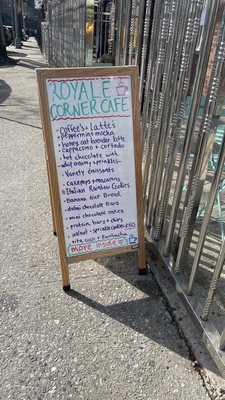 ROYALE
CORNER CAFE
• Coffee's + Latte's
• Peppermint mocha
• honey oat lavender latte
• cappuccino + cortado
• hot chocolate with
whip cream + sprinkles
• Variety croissants
• cakepops + macarons
• Italian Rainbow Cookies
• Banana Nut Bread
• dubai chocolate Bars
• mini chocolate cakes
• protein bars + chips
• walnut + sprinkle cookies
• vita coco + Kombucha
more inside